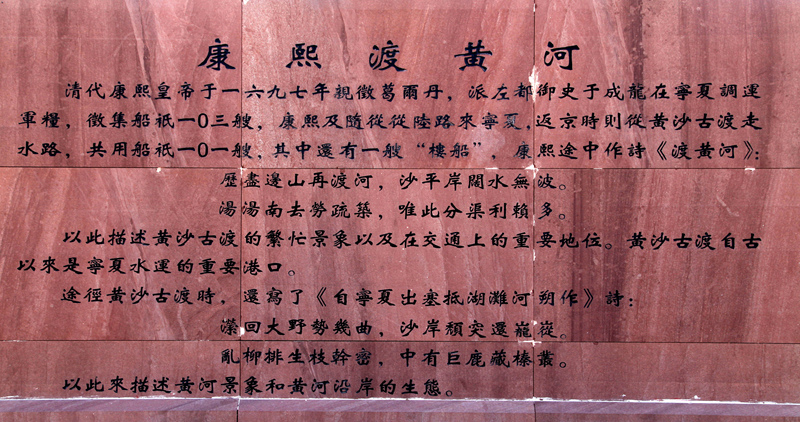 康熙渡黄河
清代康熙皇帝于一六九七年親徵葛爾丹，派左都御史于成龍在寧夏調運
軍糧，徵集船祇一0三艘，康熙及隨從從陸路來寧夏，返京時則從黄沙古渡走
水路，共用船祇一0一艘，其中還有一艘“樓船”，康熙途中作詩《渡黄河》：
歷盡邊山再渡河，沙平岸闊水無波。
湯湯南去勞疏築，唯此分渠利賴多。
以此描述黄沙古渡的繁忙景象以及在交通上的重要地位。黄沙古渡自古
以來是寧夏水運的重要港口。
途徑黄沙古渡時，還寫了《自寧夏出塞抵湖灘河朔作》詩：
瀠回大野勢幾曲，沙岸頹突還巃嵸。
亂柳排生枝幹密，中有巨鹿藏榛叢。
以此來描述黄河景象和黄河沿岸的生態。